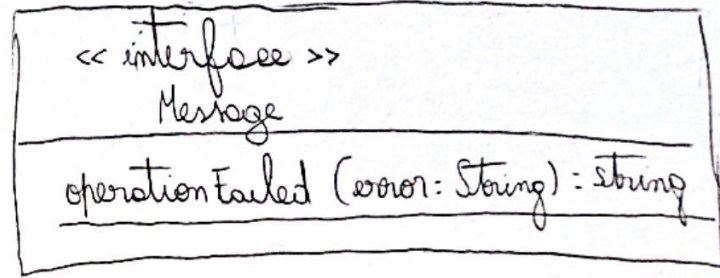 << interface >>
Message
operationFailed (error: String): string